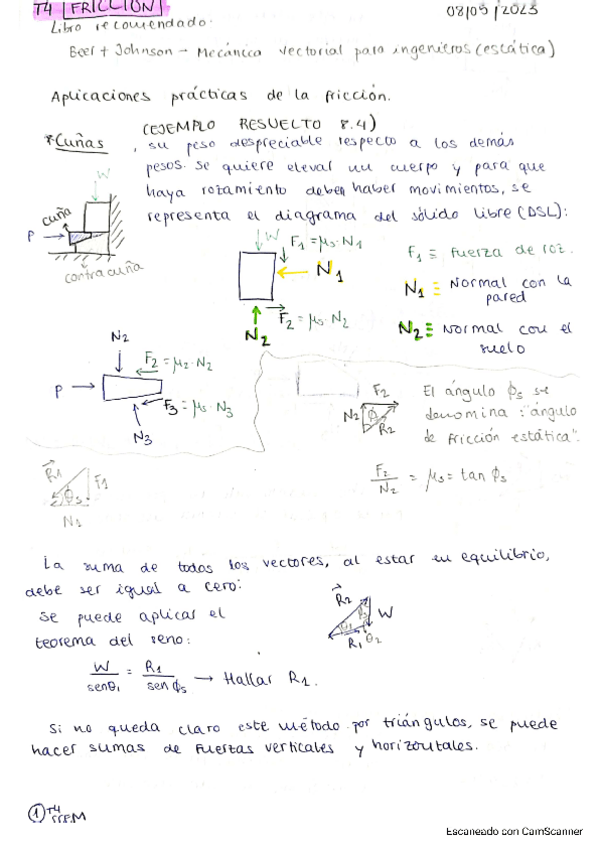 T4 FRICCIÓN
08/05/2023
Libro recomendado:
Beer + Johnson - Mecánica vectorial para ingenieros (estática)
Aplicaciones prácticas de la fricción.
(EJEMPLO RESUELTO 8.4)
*Cuñas, su peso despreciable respecto a los demás
pesos. Se quiere elevar un cuerpo y para que
haya rozamiento deben haber movimientos, se
representa el diagrama del sólido libre (DSL):
W
cuña
P
contracuña
W F₁ = μs·N₁
N₁
F₂ = μs·N₂
N₂
F₁ ≡ fuerza de roz.
N₁ ≡ Normal con la
pared
N₂ ≡ Normal con el
suelo
N₂
F₂ = μ₂·N₂
P
F₃ = μs·N₃
N₃
F₂
N₂ ϕ
R₂
El ángulo ϕs se
denomina: "ángulo
de fricción estática".
F₂/N₂ = μs = tan ϕs
R₁ F₁
ϕs
N₁
La suma de todos los vectores, al estar en equilibrio,
debe ser igual a cero:
Se puede aplicar el
teorema del seno:
R₂
W
R₁ θ₂
W/senθ₁ = R₁/sen ϕs → Hallar R₁.
Si no queda claro este método por triángulos, se puede
hacer sumas de fuerzas verticales y horizontales.
1 T4
Escaneado con CamScanner